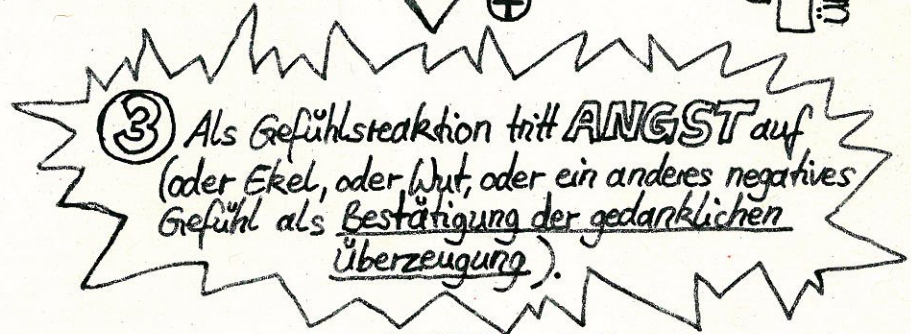 ③ Als Gefühlsreaktion tritt ANGST auf
(oder Ekel, oder Wut, oder ein anderes negatives
Gefühl als Bestätigung der gedanklichen
Überzeugung).